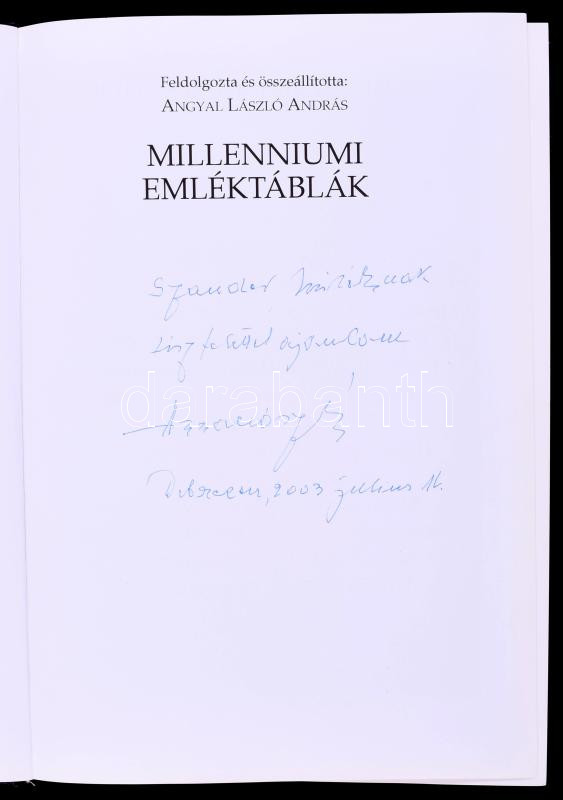 Feldolgozta és összeállította:
Angyal László András
MILLENNIUMI
EMLÉKTÁBLÁK
Szander
tisztelettel ajánlom
darabanth
Debrecen, 2003 július 16.